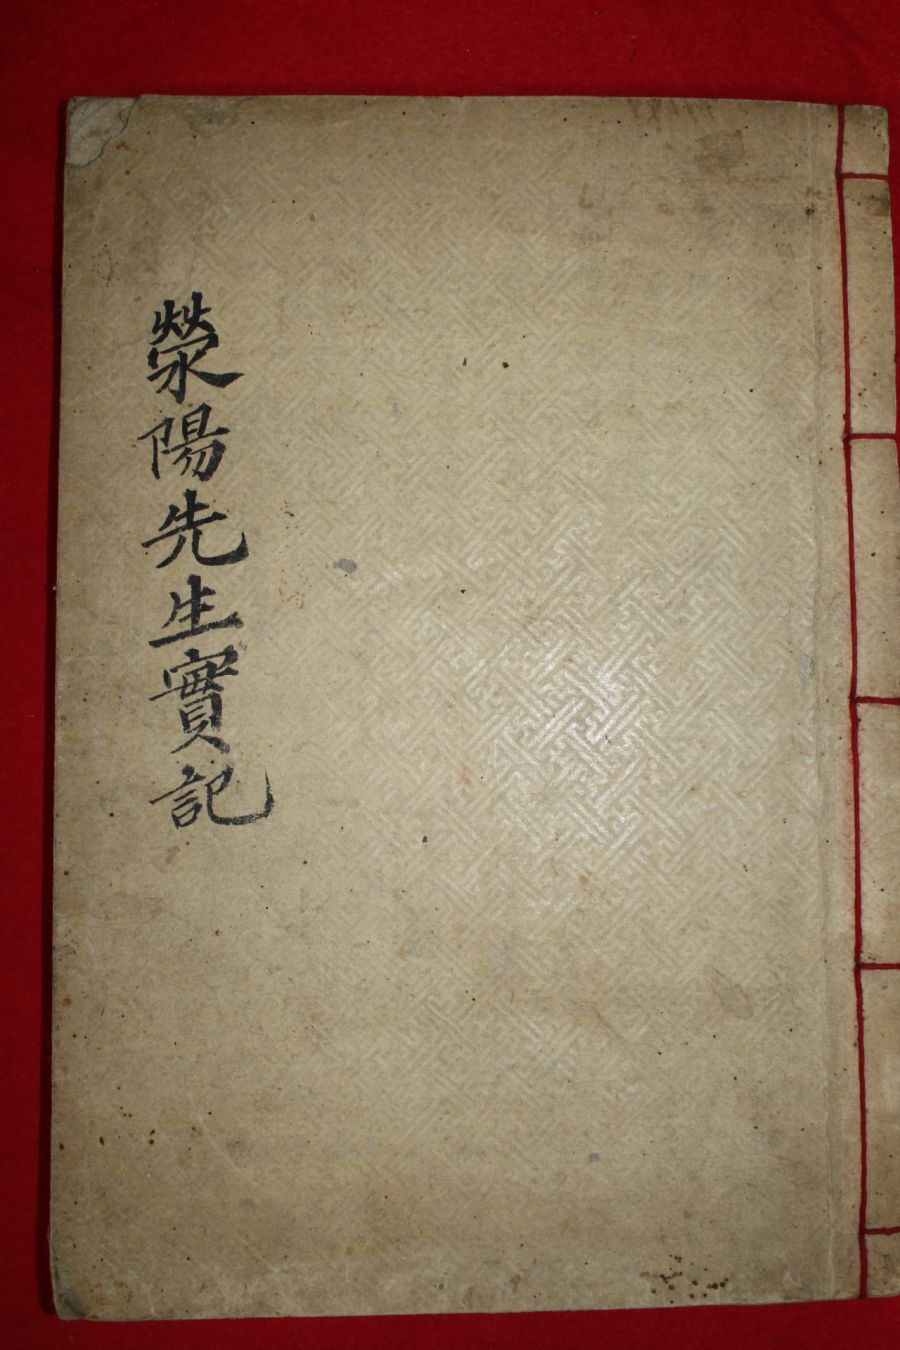 滎陽先生實記